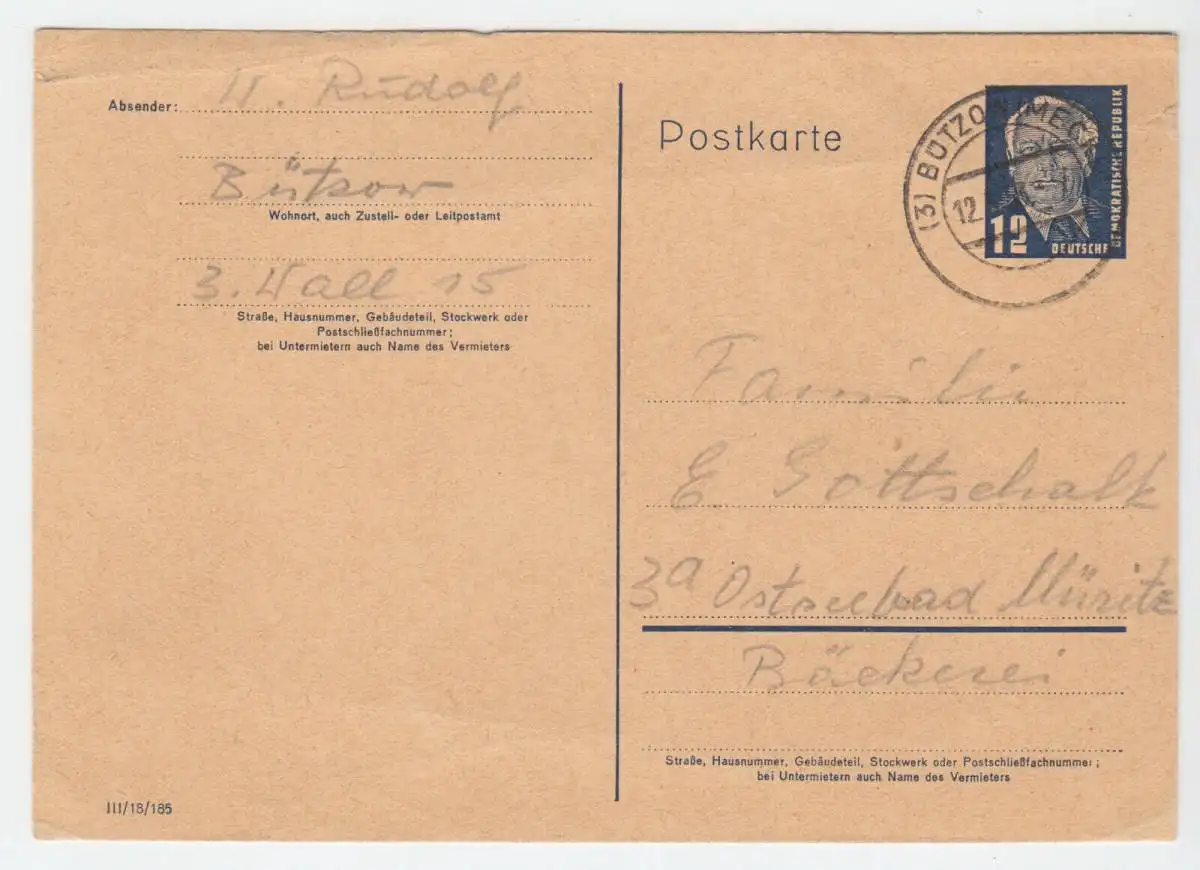 Absender: W. Rudolf
Bützow
Wohnort, auch Zustell- oder Leitpostamt
3. Wall 15
Straße, Hausnummer, Gebäudeteil, Stockwerk oder
Postschließfachnummer;
bei Untermietern auch Name des Vermieters
III/18/185
Postkarte
(3) BÜTZOW (MECKL
12.
12
DEUTSCHE
DEMOKRATISCHE REPUBLIK
Familie
E. Gottschalk
3a Ostseebad Müritz
Bäckerei
Straße, Hausnummer, Gebäudeteil, Stockwerk oder Postschließfachnummer;
bei Untermietern auch Name des Vermieters